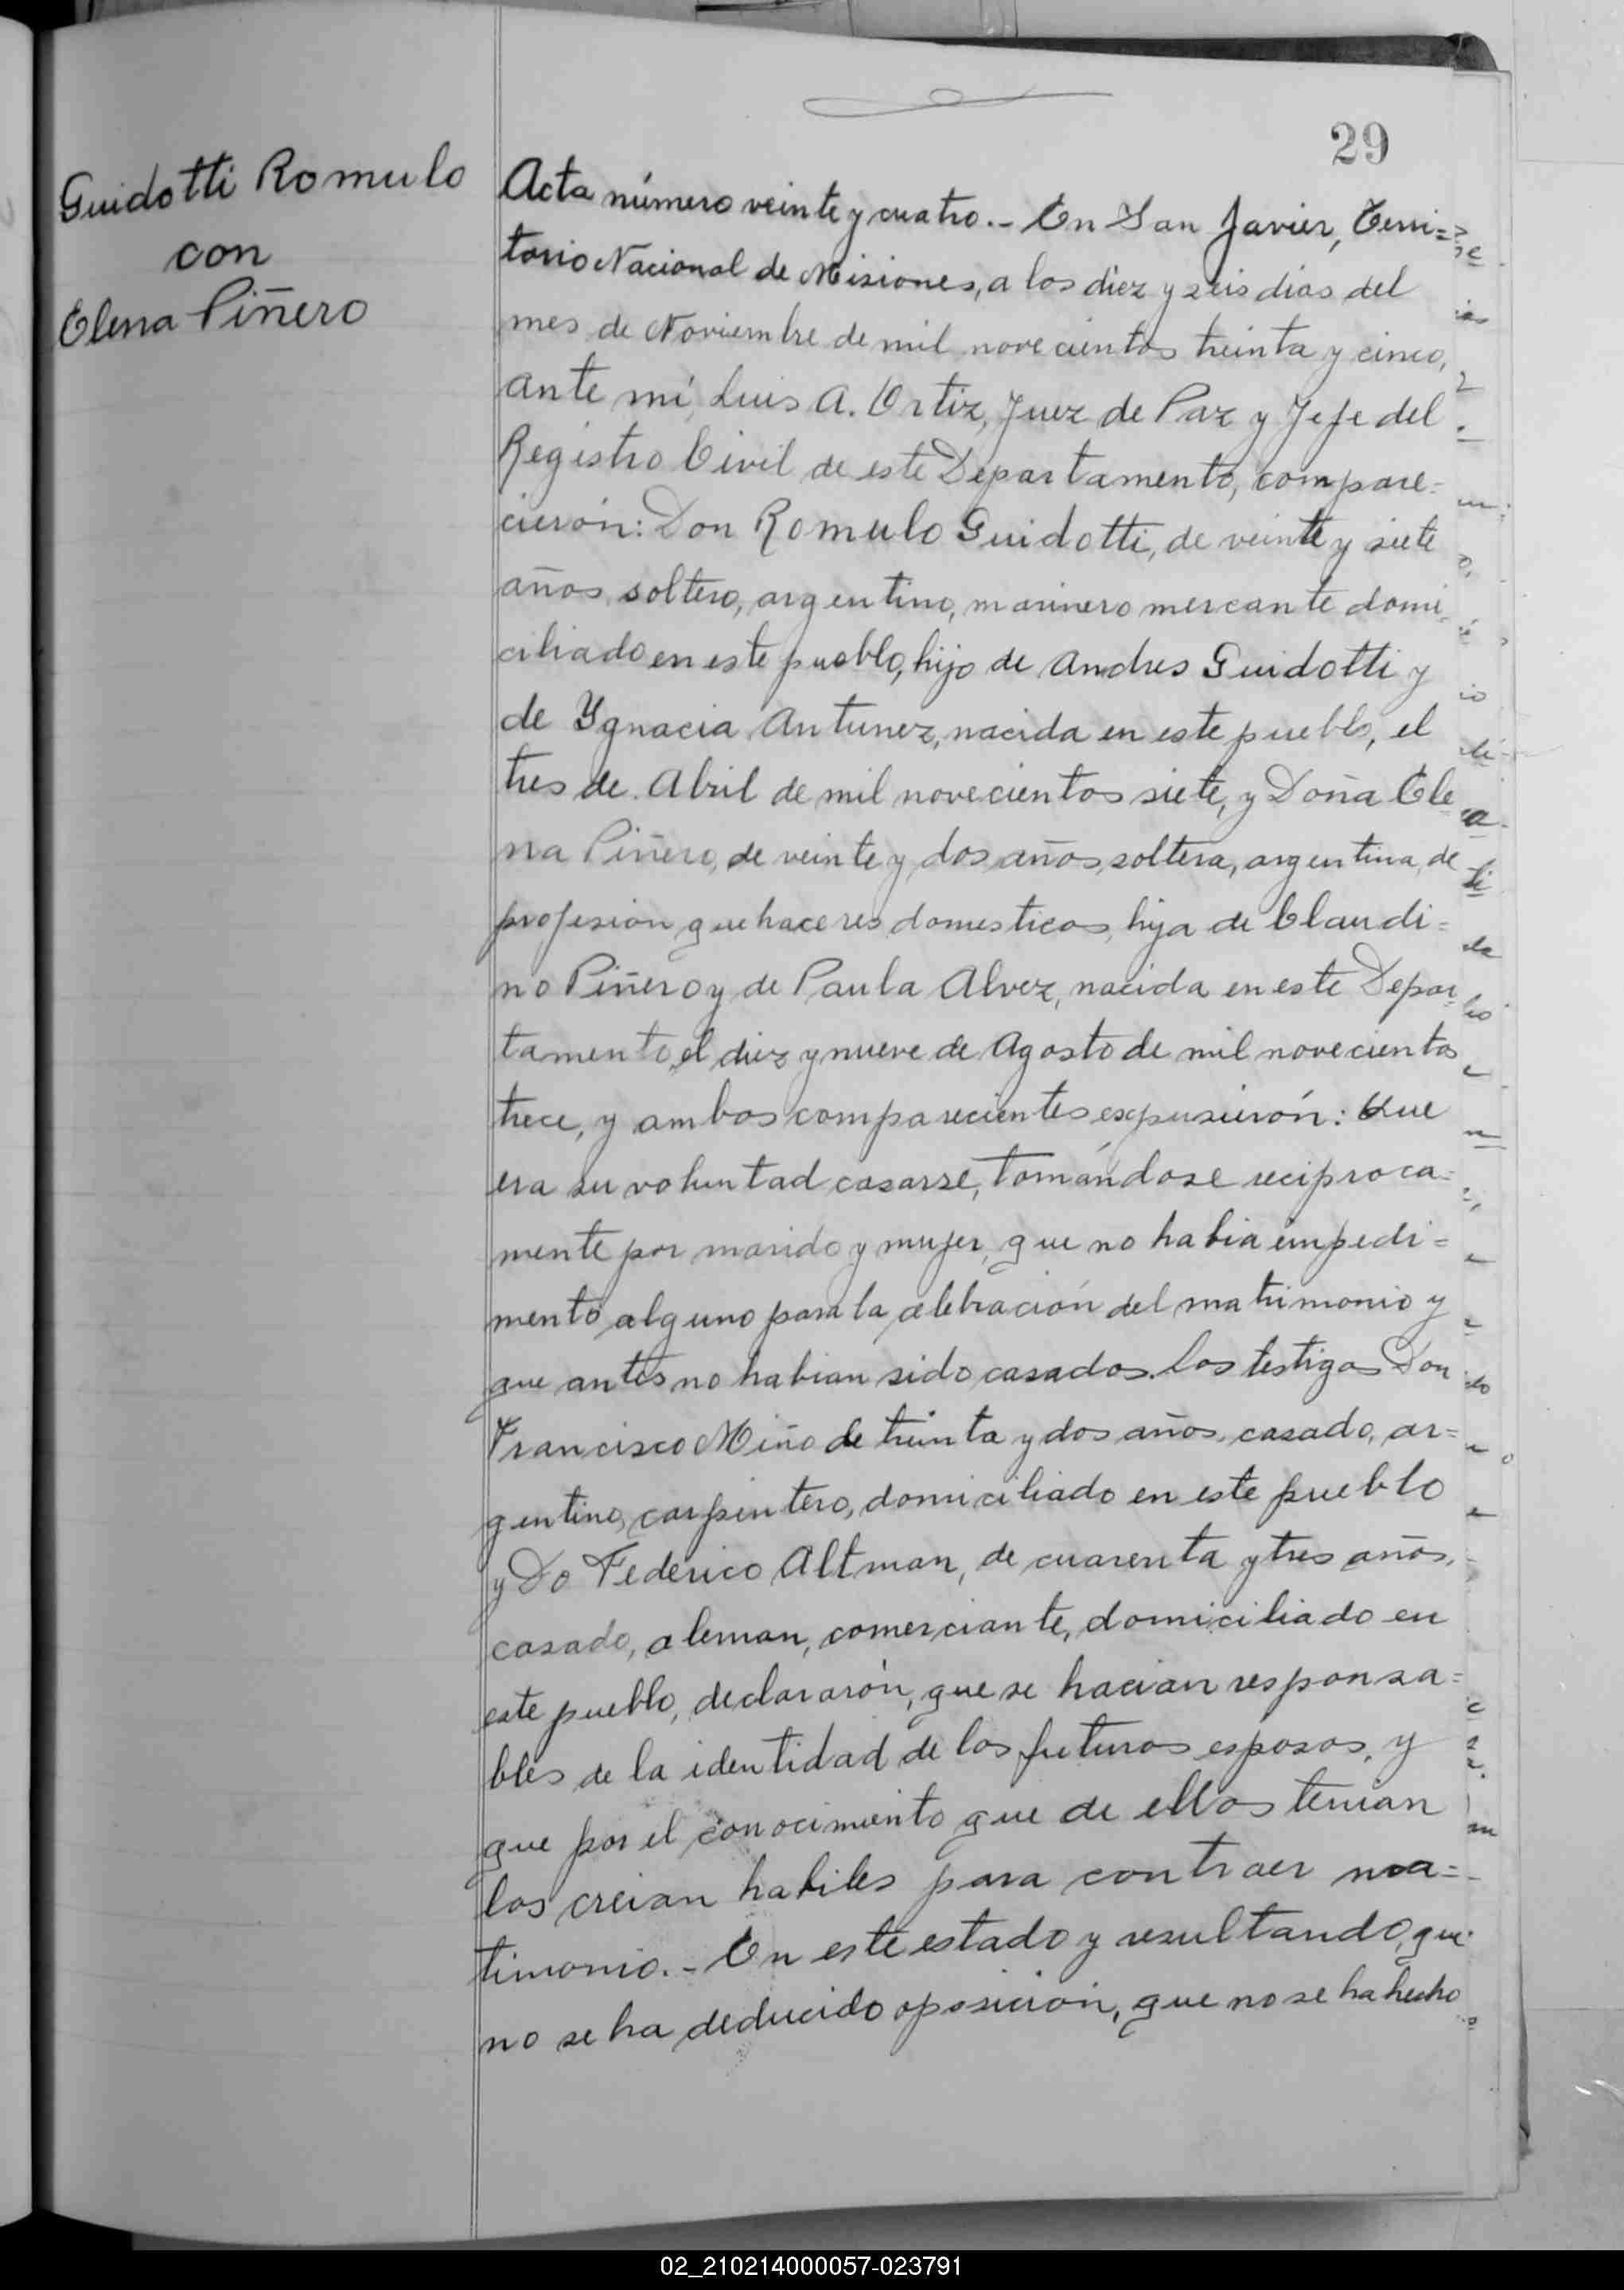 29
Guidotti Romulo
con
Elena Piñero
Acta número veinte y cuatro.- En San Javier, Terri=
torio Nacional de Misiones, a los diez y seis dias del
mes de Noviembre de mil novecientos treinta y cinco,
ante mí, Luis A. Ortiz, Juez de Paz y Jefe del
Registro Civil de este Departamento, compare=
cierón: Don Romulo Guidotti, de veinte y siete
años, soltero, argentino, marinero mercante domi
ciliado en este pueblo, hijo de Andres Guidotti y
de Ygnacia Antunez, nacida en este pueblo, el
tres de Abril de mil novecientos siete, y Doña Ele
na Piñero, de veinte y dos años, soltera, argentina, de
profesión quehaceres domesticos, hija de Claudi=
no Piñero y de Paula Alvez, nacida en este Depar
tamento, el diez y nueve de Agosto de mil novecientos
trece, y ambos comparecientes expusierón: Que
era su voluntad casarse, tomándose reciproca=
mente por marido y mujer, que no habia impedi=
mento alguno para la celebración del matrimonio y
que antes no habian sido casados. Los testigos Don
Francisco Miño de treinta y dos años, casado, ar=
gentino, carpintero, domiciliado en este pueblo
y Do Federico Altman, de cuarenta y tres años,
casado, aleman, comerciante, domiciliado en
este pueblo, declararón, que se hacian responsa=
bles de la identidad de los futuros esposos, y
que por el conocimiento que de ellos tenian
los creian habiles para contraer ma=
timonio.- En este estado y resultando, que
no se ha deducido oposición, que no se ha hecho
02_210214000057-023791